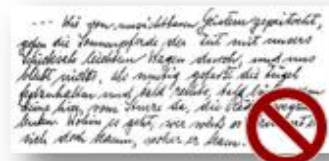 --- Wie von unsichtbaren Geistern gepeitscht,
gehen die Sonnenpferde der Zeit mit unsers
Schicksals leichtem Wagen durch, und uns
bleibt nichts, als mutig gefaßt die Zügel
festzuhalten und bald rechts, bald links, vom
Steine hier, vom Sturze da, die Räder
Wohin es geht, wer weiß es?
sich doch kaum, woher er kam.